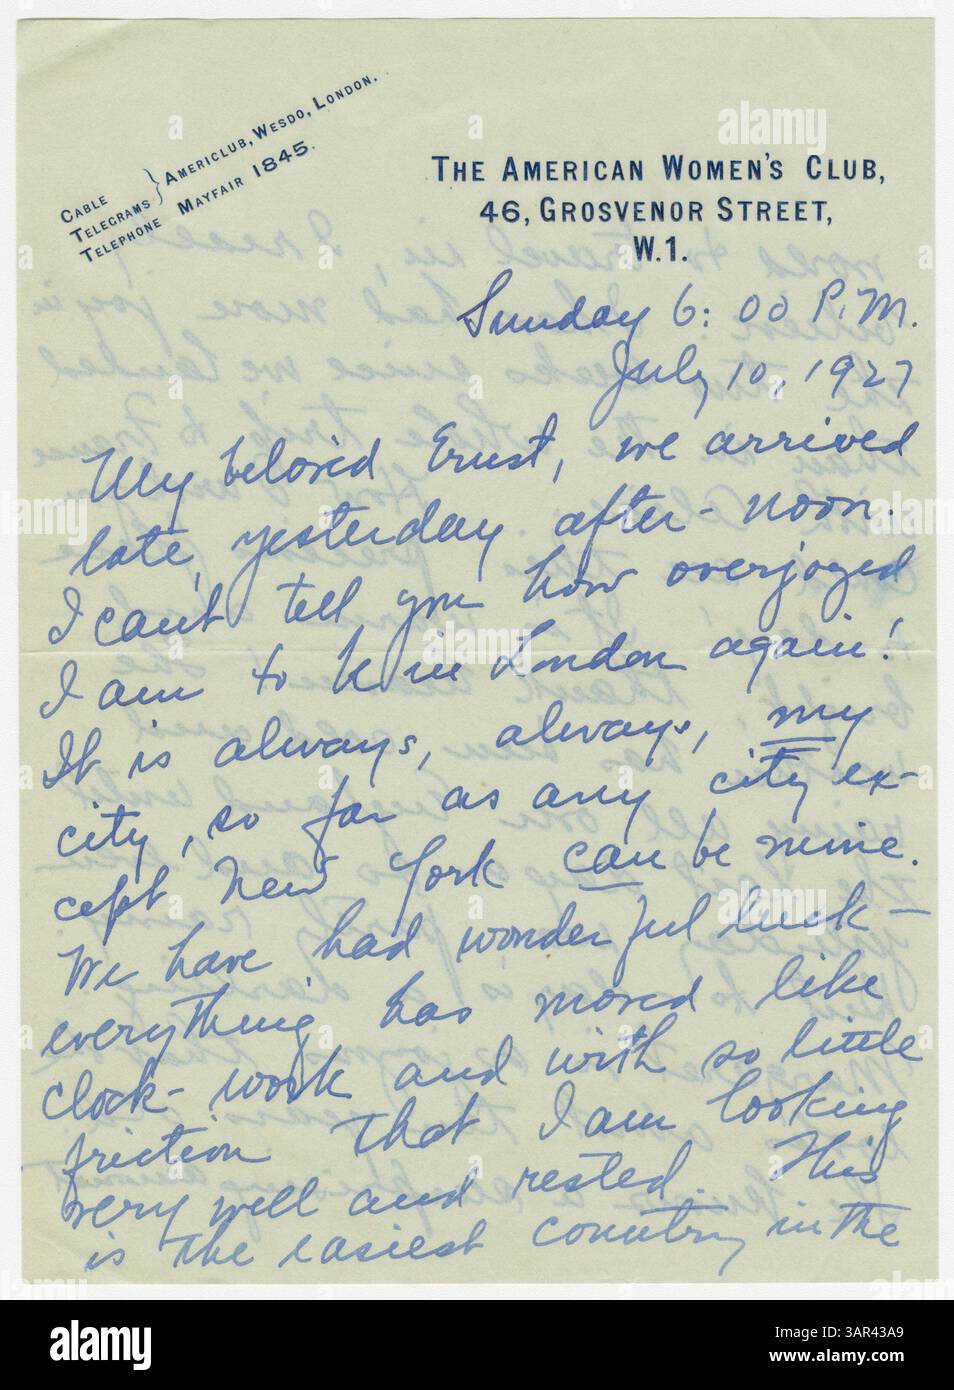 CABLE
TELEGRAMS } AMERICLUB, WESDO, LONDON.
TELEPHONE MAYFAIR 1845.
THE AMERICAN WOMEN'S CLUB,
46, GROSVENOR STREET,
W.1.
Sunday 6:00 P.M.
July 10, 1927
My beloved Ernst, we arrived
late yesterday after-noon.
I can't tell you how overjoyed
I am to be in London again!
It is always, always, my
city, so far as any city ex-
cept New York can be mine.
We have had wonderful luck –
everything has moved like
clock-work and with so little
friction that I am looking
very well and rested. This
is the easiest country in the
alamy
Image ID: 3AR43A9
www.alamy.com